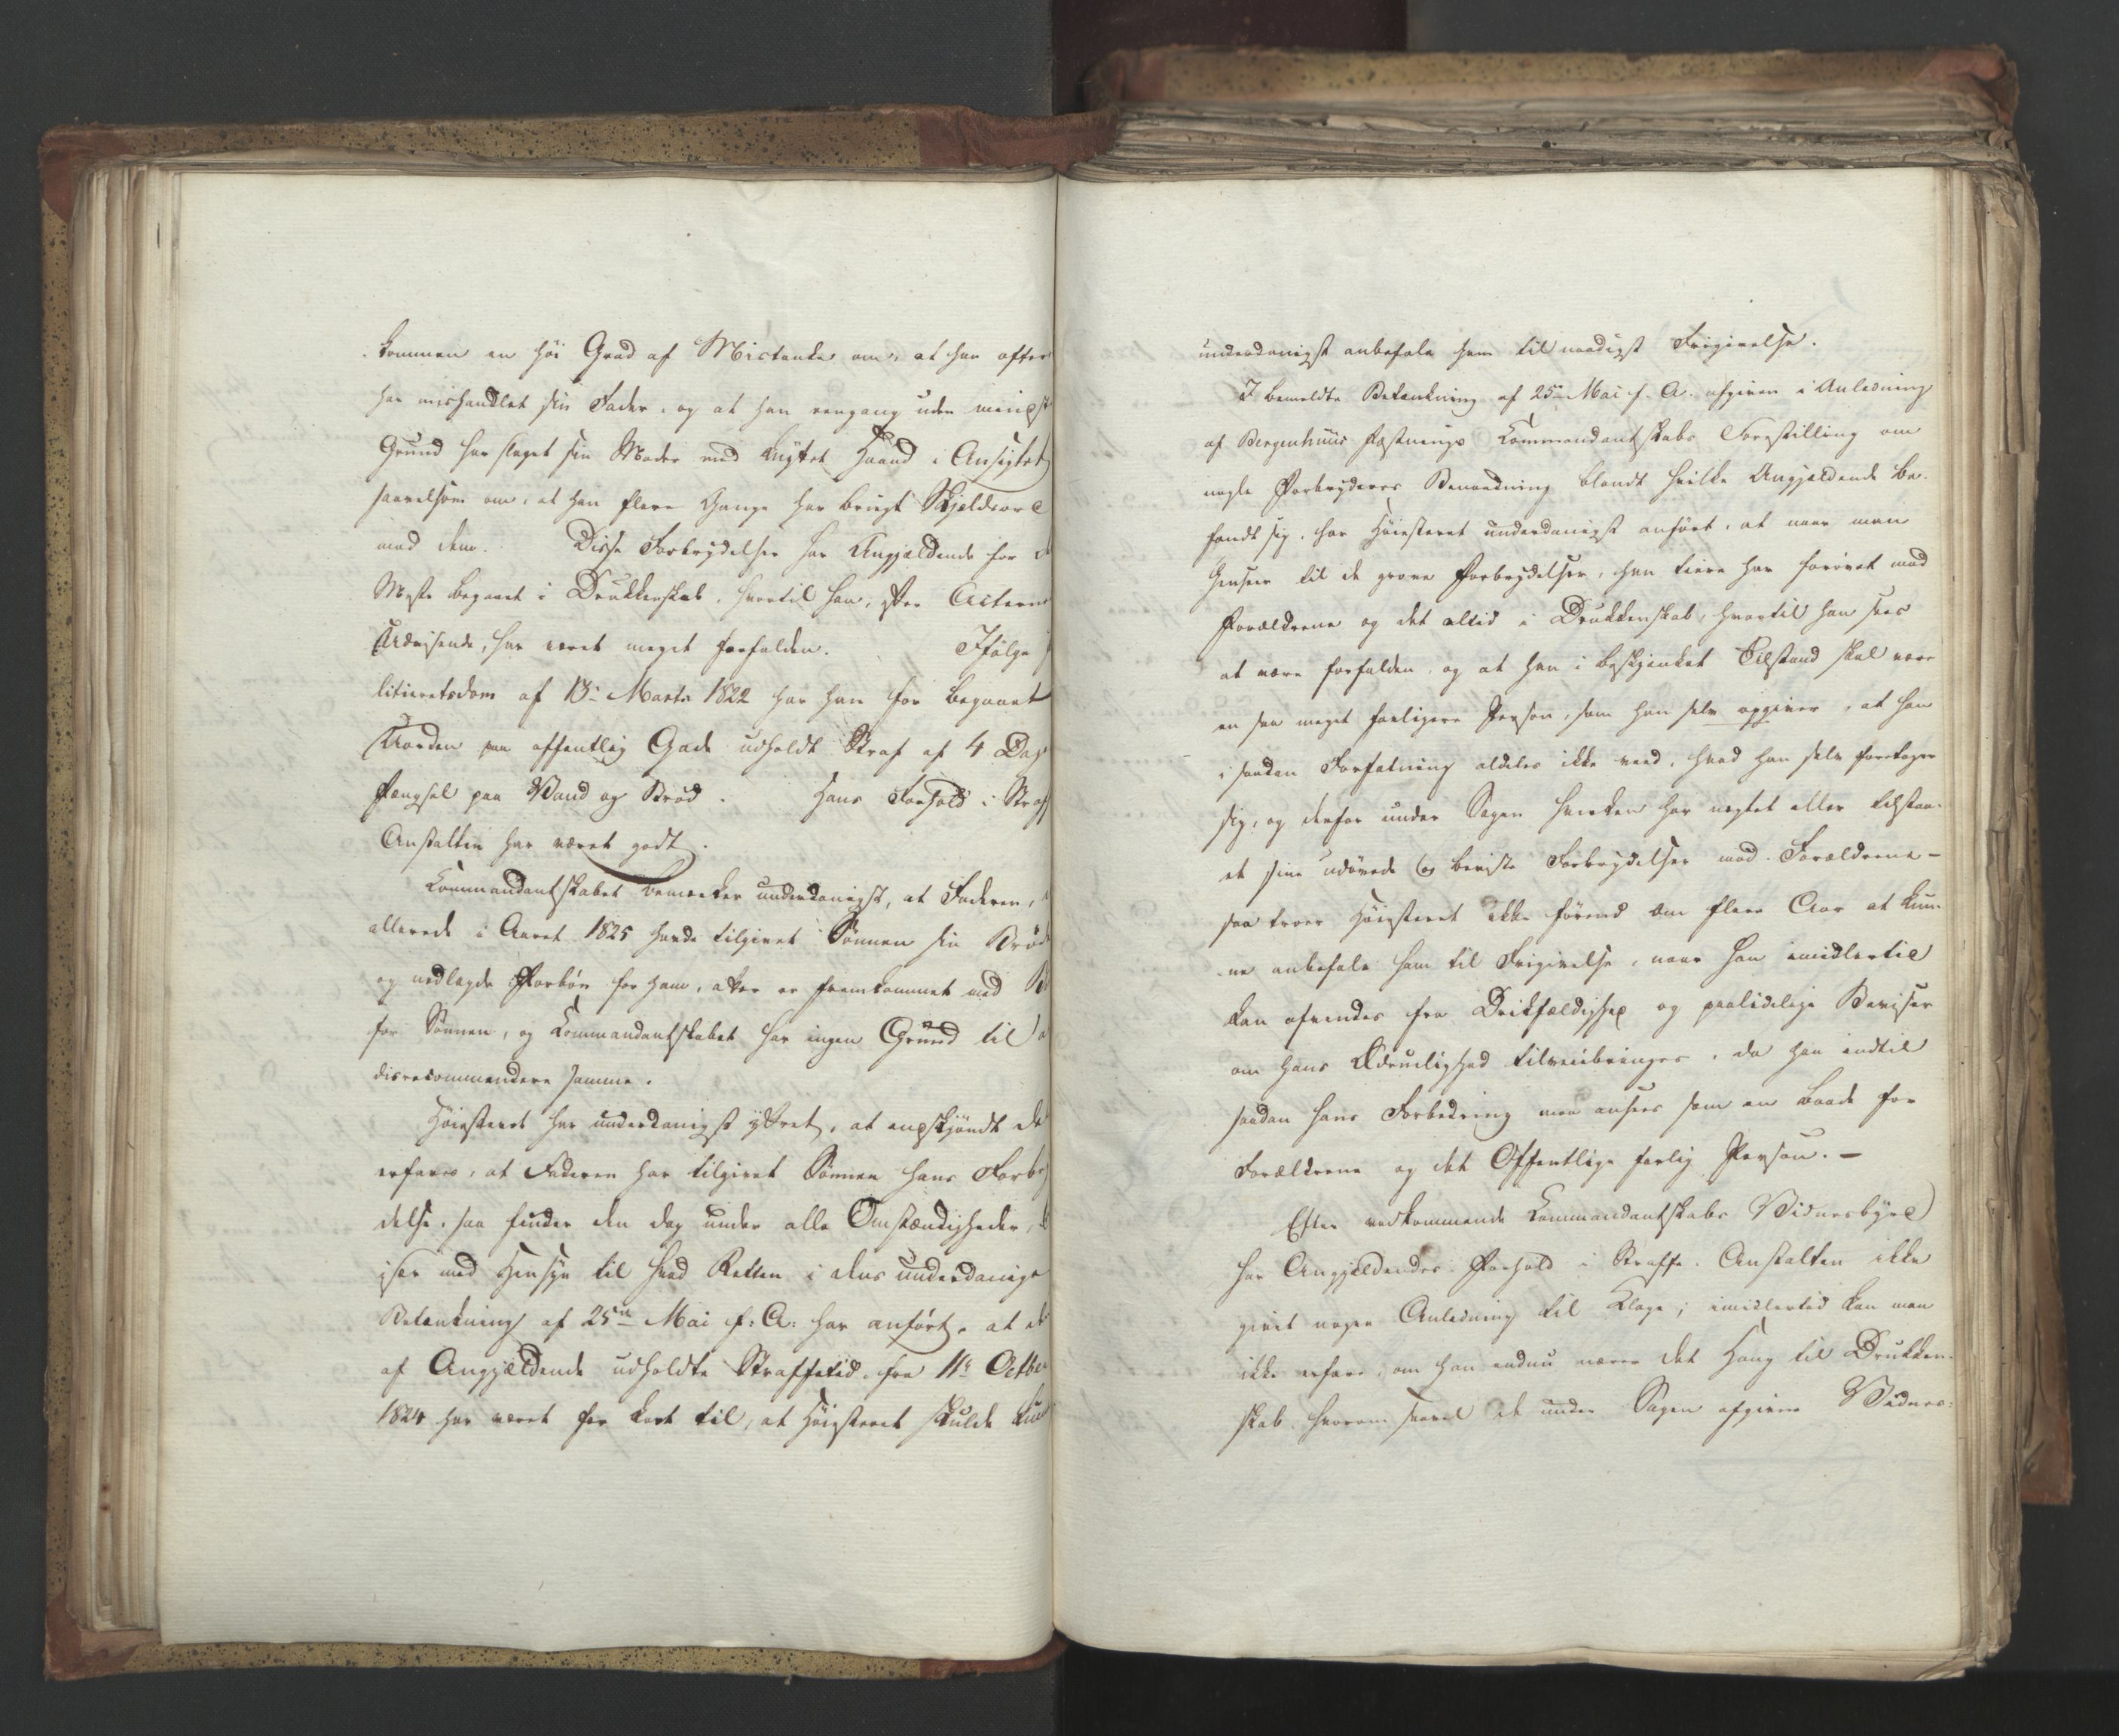 kommen en høi Grad af Mistanke om, at han oftere
har mishandlet sin Fader, og at han engang uden mindste
Grund har slaget sin Moder med knyttet Haand i Ansigtet
saavelsom om, at han flere Gange har brugt Skjeldsord
mod dem. Disse Forbrydelser har Angjældende for d
Meste begaaet i Drukkenskab, hvortil han, efter Acterne
Udvisende, har været meget forfalden. Ifølge
litieretsdom af 13de Marts 1822 har han for begaaet
Uorden paa offentlig Gade udholdt Straf af 4 Dag
Fængsel paa Vand og Brød. Hans Forhold i Straf
Anstalten har været godt.
Kommandantskabet bemærker underdanigst, at Faderen,
allerede i Aaret 1825 havde tilgivet Sønnen sin Brøde
og nedlagde Forbøn for ham, atter er fremkommet med B
for Sønnen, og Kommandantskabet har ingen Grund til a
disrecommendere samme.
Høiesteret har underdanigst yttret, at enskjøndt de
erfares, at Faderen har tilgivet Sønnen hans Forbry
delse, saa finder den dog under alle Omstændigheder,
især med Hensyn til hvad Retten i dens underdanige
Betænkning af 25de Mai f: A: har anført, at d
af Angjældende udholdte Straffetid fra 11te Octbr
1824 har været for kort til, at Høiesteret skulde kun
underdanigst anbefale ham til naadigst Frigivelse.
I bemeldte Betænkning af 25de Mai f. A. afgiven i Anledning
af Bergenhuus Fæstnings Kommandantskabs Forestilling om
nogle Forbryderes Benaadning blandt hvilke Angjældende be-
fandt sig, har Høiesteret underdanigst anført, at naar man
henseer til de grove Forbrydelser, han tiere har forøvet mod
Forældrene og det altid i Drukkenskab, hvortil han sees
at være forfalden, og at han i beskjenket Tilstand skal være
en saa meget farligere Person, som han selv opgiver, at han
i saadan Forfatning aldeles ikke veed, hvad han selv foretager
sig, og derfor under Sagen hverken har negtet eller tilstaa-
et sine udøvede og beviste Forbrydelser mod Forældrene -
saa troer Høiesteret ikke førend om flere Aar at kun-
ne anbefale ham til Frigivelse, naar han imidlertid
kan afvendes fra Drikfældighed og paalidelige Beviser
om hans Ædruelighed tilveiebringes, da han indtil
saadan hans Forbedring maa ansees som en baade for
Forældrene og det Offentlige farlig Person. -
Efter vedkommende Kommandantskabs Vidnesbyrd
har Angjældendes Forhold i Straffe-Anstalten ikke
givet nogen Anledning til Klage; imidlertid kan man
ikke erfare, om han endnu nærer det Hang til Drukken-
skab, hvorom saavel de under Sagen afgivne Vidnes-